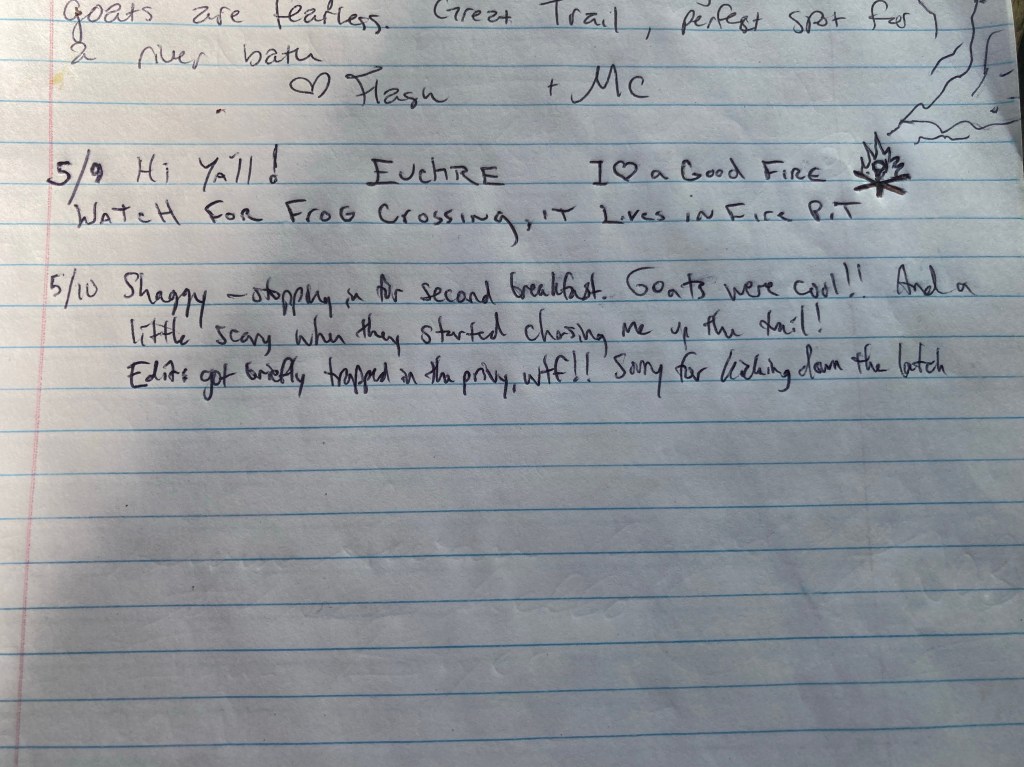 goats are fearless. Great Trail, perfect spot for
a river bath
♡ Flash + Mc
5/9 Hi Ya'll! EUCHRE I ♡ a Good FIRE
WATCH FOR FROG CROSSING, IT LIVES IN FIRE PIT
5/10 Shaggy - stopping in for second breakfast. Goats were cool!! And a
little scary when they started chasing me up the trail!
Edit: got briefly trapped in the privy, wtf!! Sorry for kicking down the latch